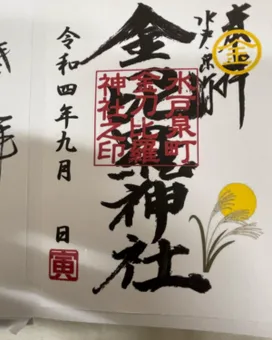 奉拝
金
水戸泉町
金刀比羅神社
水戸泉町
金刀比羅
神社之印
令和四年九月 日
寅